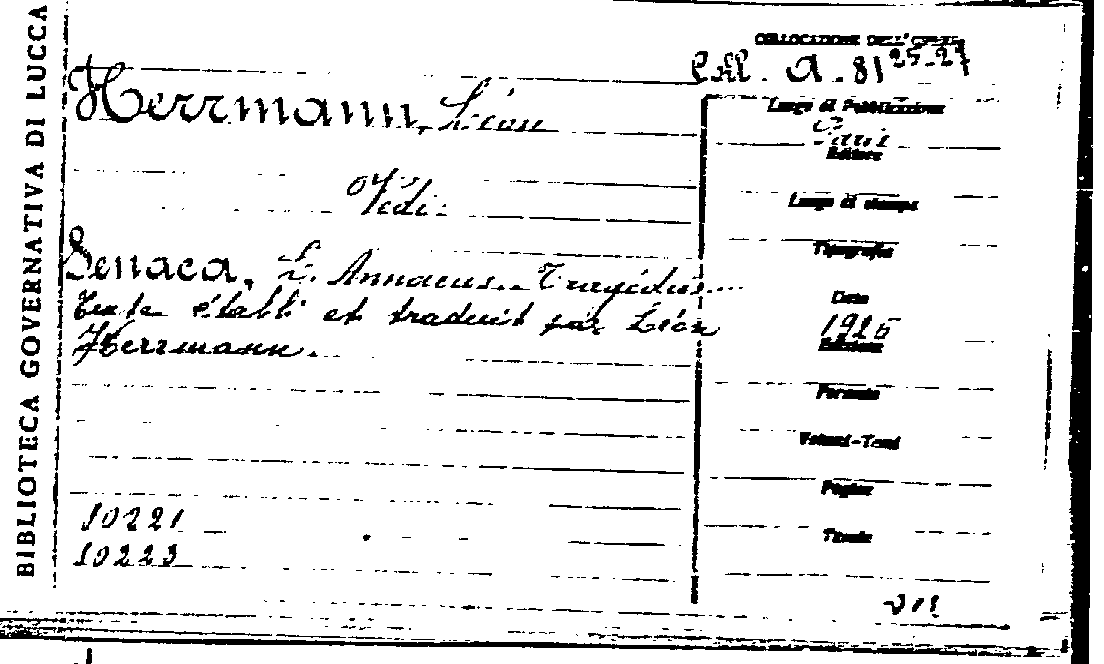 BIBLIOTECA GOVERNATIVA DI LUCCA
COLLOCAZIONE DELL'OPERA
Coll. A. 81 25-27
Herrmann, Léon
Vedi:
Senaca, L. Annaeus.. Tragédies...
Texte établi et traduit par Léon
Herrmann.
10221
10223
Luogo di Pubblicazione
Paris
Editore
Luogo di stampa
Tipografia
Data
1925
Edizione
Formato
Volumi-Tomi
Pagine
Titolo